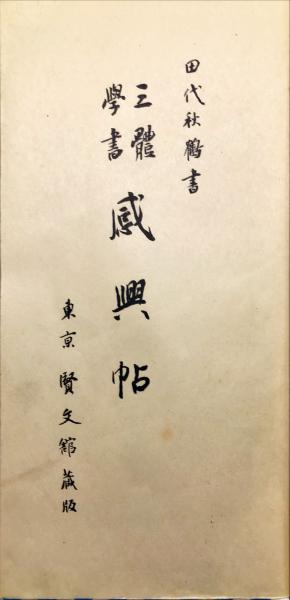 田代秋鶴書
三體
學書
感興帖
東京賢文館蔵版